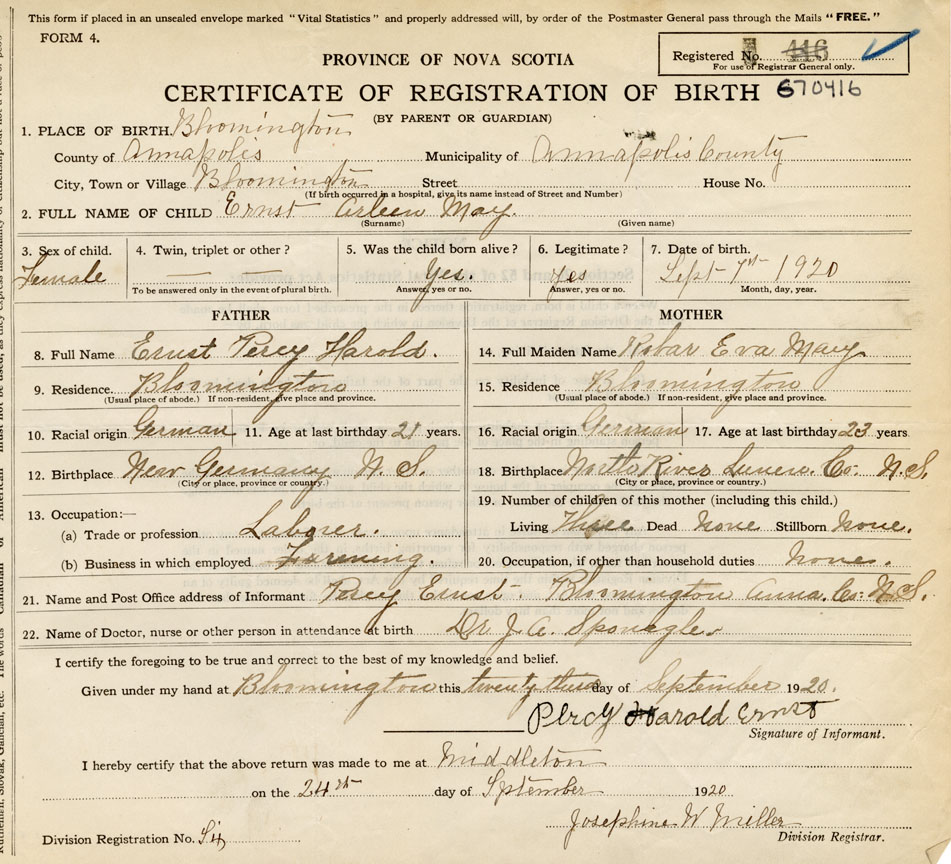 This form if placed in an unsealed envelope marked "Vital Statistics" and properly addressed will, by order of the Postmaster General pass through the Mails "FREE."
FORM 4.
Registered No. 416
For use of Registrar General only.
PROVINCE OF NOVA SCOTIA
CERTIFICATE OF REGISTRATION OF BIRTH 670416
(BY PARENT OR GUARDIAN)
1. PLACE OF BIRTH Bloomington
County of Annapolis Municipality of Annapolis County
City, Town or Village Bloomington Street House No.
(If birth occurred in a hospital, give its name instead of Street and Number)
2. FULL NAME OF CHILD Ernst Arleen May.
(Surname) (Given name)
3. Sex of child. 4. Twin, triplet or other? 5. Was the child born alive? 6. Legitimate? 7. Date of birth.
Female — Yes. Yes Sept 7th 1920
To be answered only in the event of plural birth. Answer, yes or no. Answer, yes or no. Month, day, year.
FATHER MOTHER
8. Full Name Ernst Percy Harold. 14. Full Maiden Name Robar Eva May
9. Residence Bloomington 15. Residence Bloomington
(Usual place of abode.) If non-resident, give place and province. (Usual place of abode.) If non-resident, give place and province.
10. Racial origin German 11. Age at last birthday 21 years. 16. Racial origin German 17. Age at last birthday 23 years
12. Birthplace New Germany N. S. 18. Birthplace North River Lunen. Co. N.S.
(City or place, province or country.) (City or place, province or country.)
19. Number of children of this mother (including this child.)
13. Occupation:—
(a) Trade or profession Laborer. Living Three Dead None Stillborn None.
(b) Business in which employed Farming. 20. Occupation, if other than household duties None.
21. Name and Post Office address of Informant Percy Ernst. Bloomington Anna. Co. N.S.
22. Name of Doctor, nurse or other person in attendance at birth Dr. J. A. Sponagle
I certify the foregoing to be true and correct to the best of my knowledge and belief.
Given under my hand at Bloomington this twenty third day of September 1920.
Percy Harold Ernst
Signature of Informant.
I hereby certify that the above return was made to me at Middleton
on the 24th day of September 1920
Josephine W Miller
Division Registration No. Division Registrar.